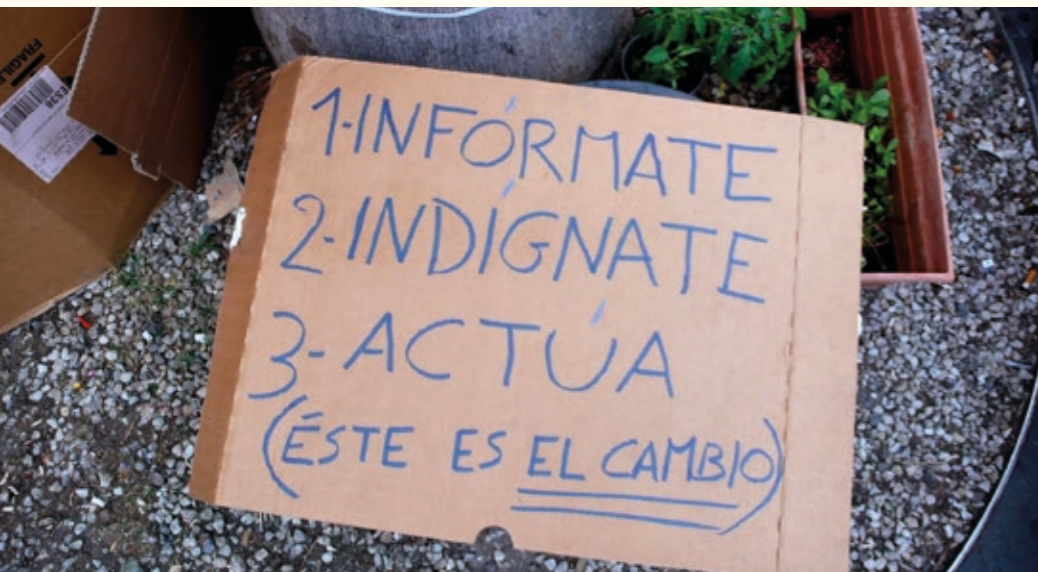 FRAGILE
1-INFÓRMATE
2-INDÍGNATE
3-ACTÚA
(ÉSTE ES EL CAMBIO)